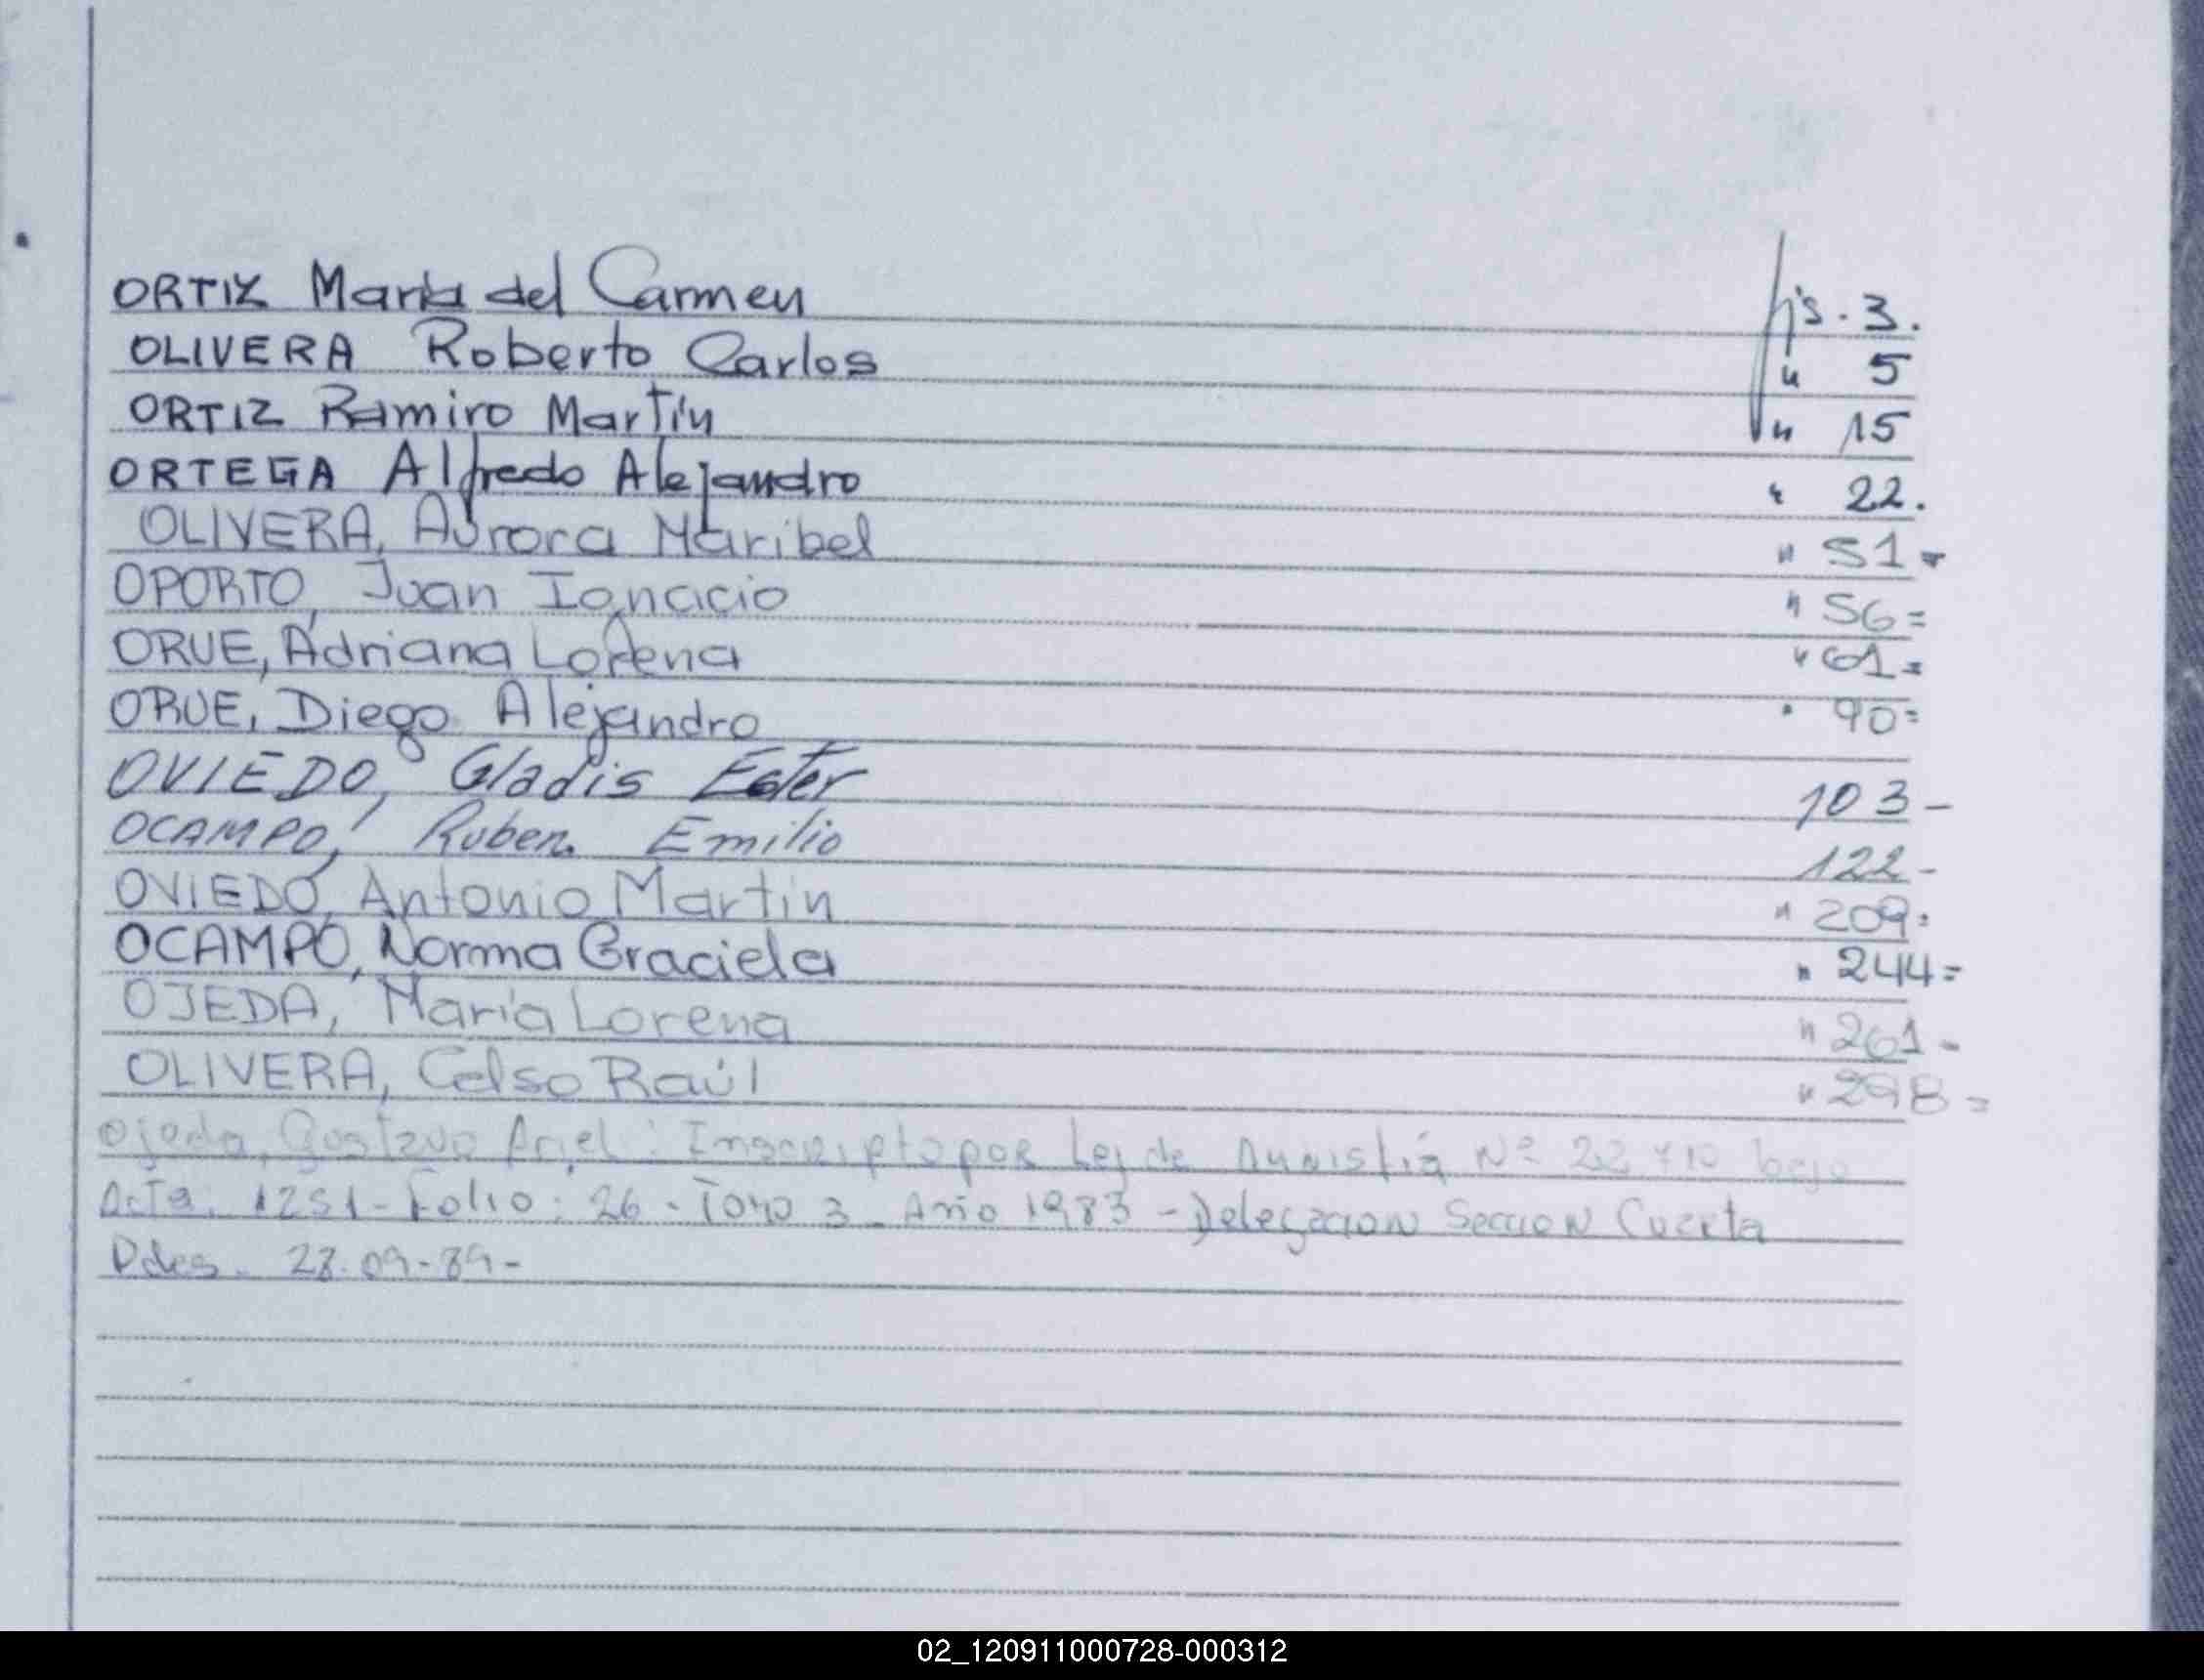 ORTIZ María del Carmen fjs. 3.
OLIVERA Roberto Carlos " 5
ORTIZ Ramiro Martín " 15
ORTEGA Alfredo Alejandro " 22.
OLIVERA, Aurora Maribel " 51=
OPORTO, Juan Ignacio " 56=
ORUE, Adriana Lorena " 61=
ORUE, Diego Alejandro " 90=
OVIEDO, Gladis Ester 103-
OCAMPO, Ruben Emilio 122-
OVIEDO, Antonio Martin " 209=
OCAMPO, Norma Graciela " 244=
OJEDA, María Lorena " 261-
OLIVERA, Celso Raúl " 298=
Ojeda, Gustavo Ariel: Inscripto por Ley de Amnistía Nº 22710 bajo
Acta. 1251- Folio: 26 - Tomo 3_ Año 1983 - Delegacion Seccion Cuarta
28-09-89-
02_120911000728-000312